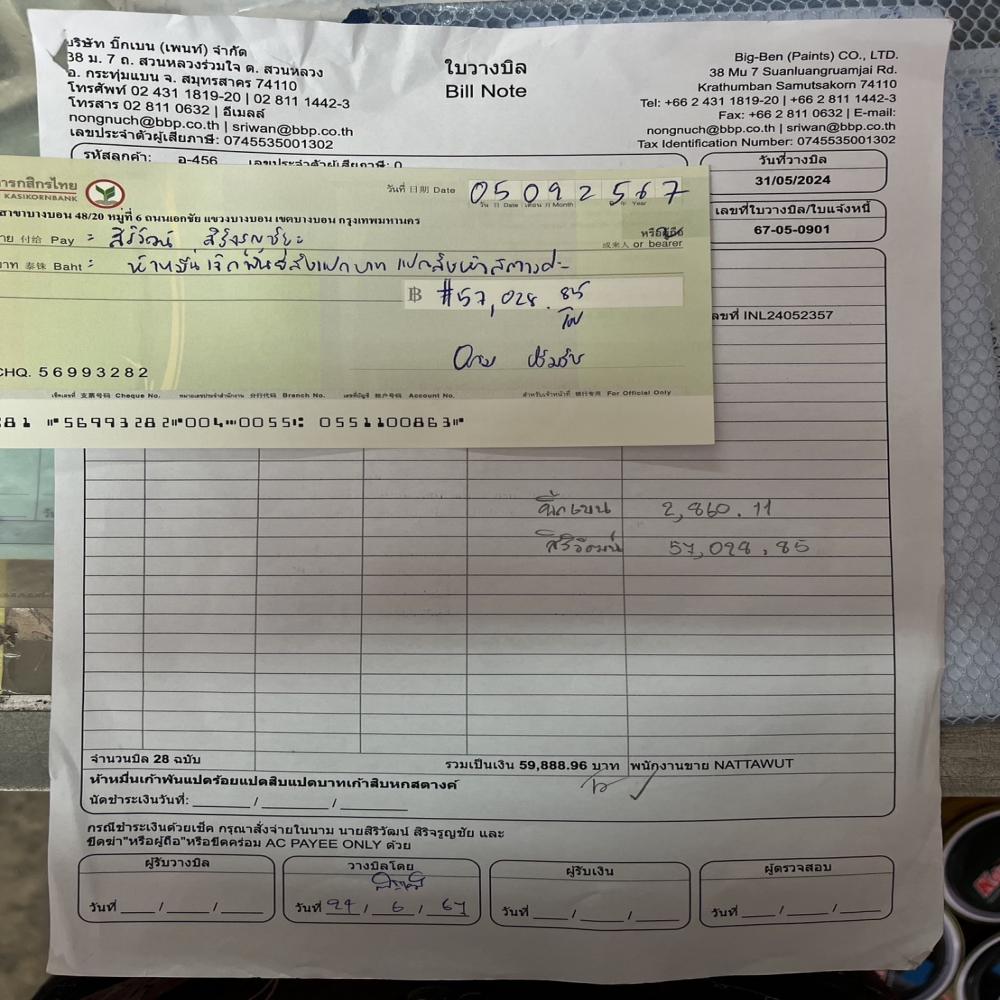 บริษัท บิ๊กเบน (เพนท์) จำกัด
38 ม. 7 ถ. สวนหลวงร่วมใจ ต. สวนหลวง
อ. กระทุ่มแบน จ. สมุทรสาคร 74110
โทรศัพท์ 02 431 1819-20 | 02 811 1442-3
โทรสาร 02 811 0632 | อีเมลล์
nongnuch@bbp.co.th | sriwan@bbp.co.th
เลขประจำตัวผู้เสียภาษี: 0745535001302
ใบวางบิล
Bill Note
Big-Ben (Paints) CO., LTD.
38 Mu 7 Suanluangruamjai Rd.
Krathumban Samutsakorn 74110
Tel: +66 2 431 1819-20 | +66 2 811 1442-3
Fax: +66 2 811 0632 | E-mail:
nongnuch@bbp.co.th | sriwan@bbp.co.th
Tax Identification Number: 0745535001302
รหัสลูกค้า: อ-456 เลขประจำตัวผู้เสียภาษี: 0
วันที่วางบิล
31/05/2024
เลขที่ใบวางบิล/ใบแจ้งหนี้
67-05-0901
ารกสิกรไทย
KASIKORNBANK
วันที่ 日期 Date 05092567
วัน 日 Date เดือน 月 Month ปี 年 Year
สาขาบางบอน 48/20 หมู่ที่ 6 ถนนเอกชัย แขวงบางบอน เขตบางบอน กรุงเทพมหานคร
าย 付给 Pay = สิริวัฒน์ สิริจรูญชัย
หรือผู้ถือ
或来人 or bearer
าท 泰铢 Baht : ห้าหมื่นเจ็ดพันยี่สิบแปดบาท แปดสิบห้าสตางค์-
฿ #57,028.85
CHQ. 56993282
เช็คเลขที่ 支票号码 Cheque No. หมายเลขประจำสำนักงาน 分行代码 Branch No. เลขที่บัญชี 帐户号码 Account No. สำหรับเจ้าหน้าที่ 银行专用 For Official Only
381 ⑈56993282⑈004⑉0055⑆ 0551100863⑈
ลขที่ INL24052357
บิ๊กเบน 2,860.11
สิริวัฒน์ 57,028.85
จำนวนบิล 28 ฉบับ รวมเป็นเงิน 59,888.96 บาท พนักงานขาย NATTAWUT
ห้าหมื่นเก้าพันแปดร้อยแปดสิบแปดบาทเก้าสิบหกสตางค์
นัดชำระเงินวันที่: ______ / ______ / ______
กรณีชำระเงินด้วยเช็ค กรุณาสั่งจ่ายในนาม นายสิริวัฒน์ สิริจรูญชัย และ
ขีดฆ่า"หรือผู้ถือ"หรือขีดคร่อม AC PAYEE ONLY ด้วย
ผู้รับวางบิล
วันที่ ___ / ___ / ___
วางบิลโดย
วันที่ 24 / 6 / 67
ผู้รับเงิน
วันที่ ___ / ___ / ___
ผู้ตรวจสอบ
วันที่ ___ / ___ / ___